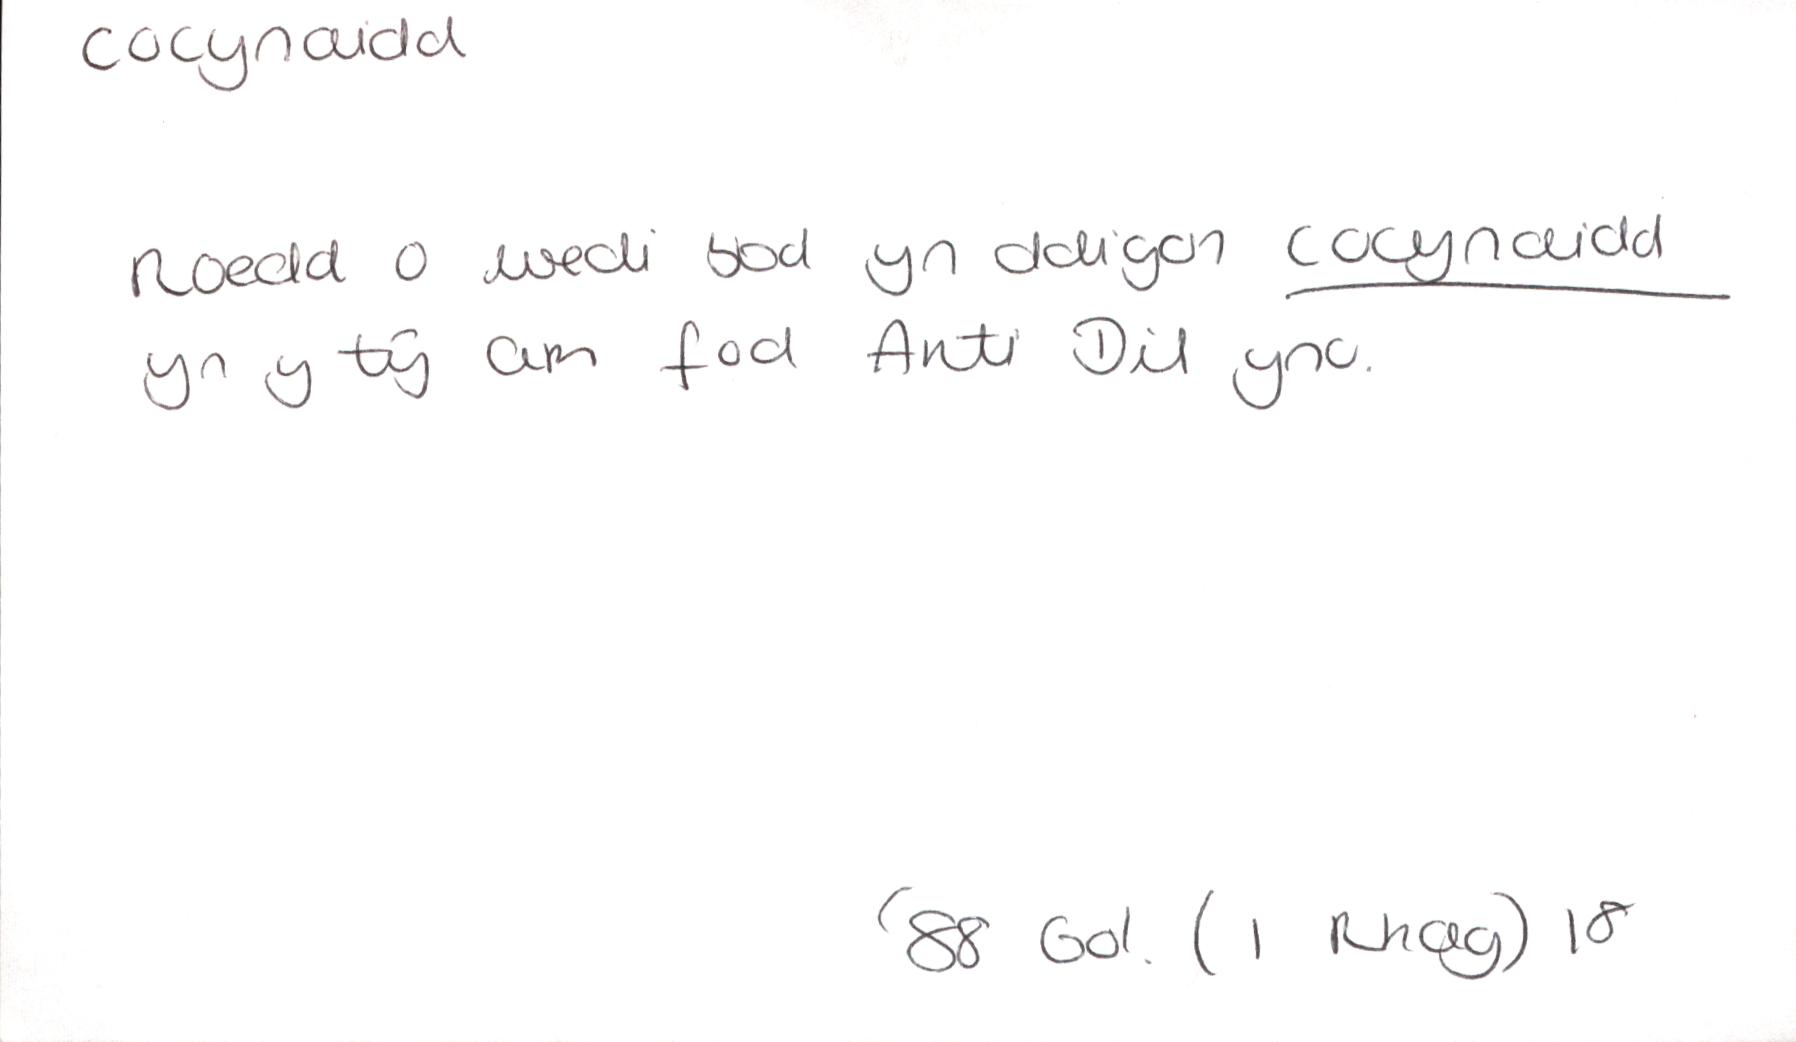 cocynaidd
Roedd o wedi bod yn ddigon cocynaidd
yn y tŷ am fod Anti Dil yno.
'88 Gol. (1 Rhag) 18